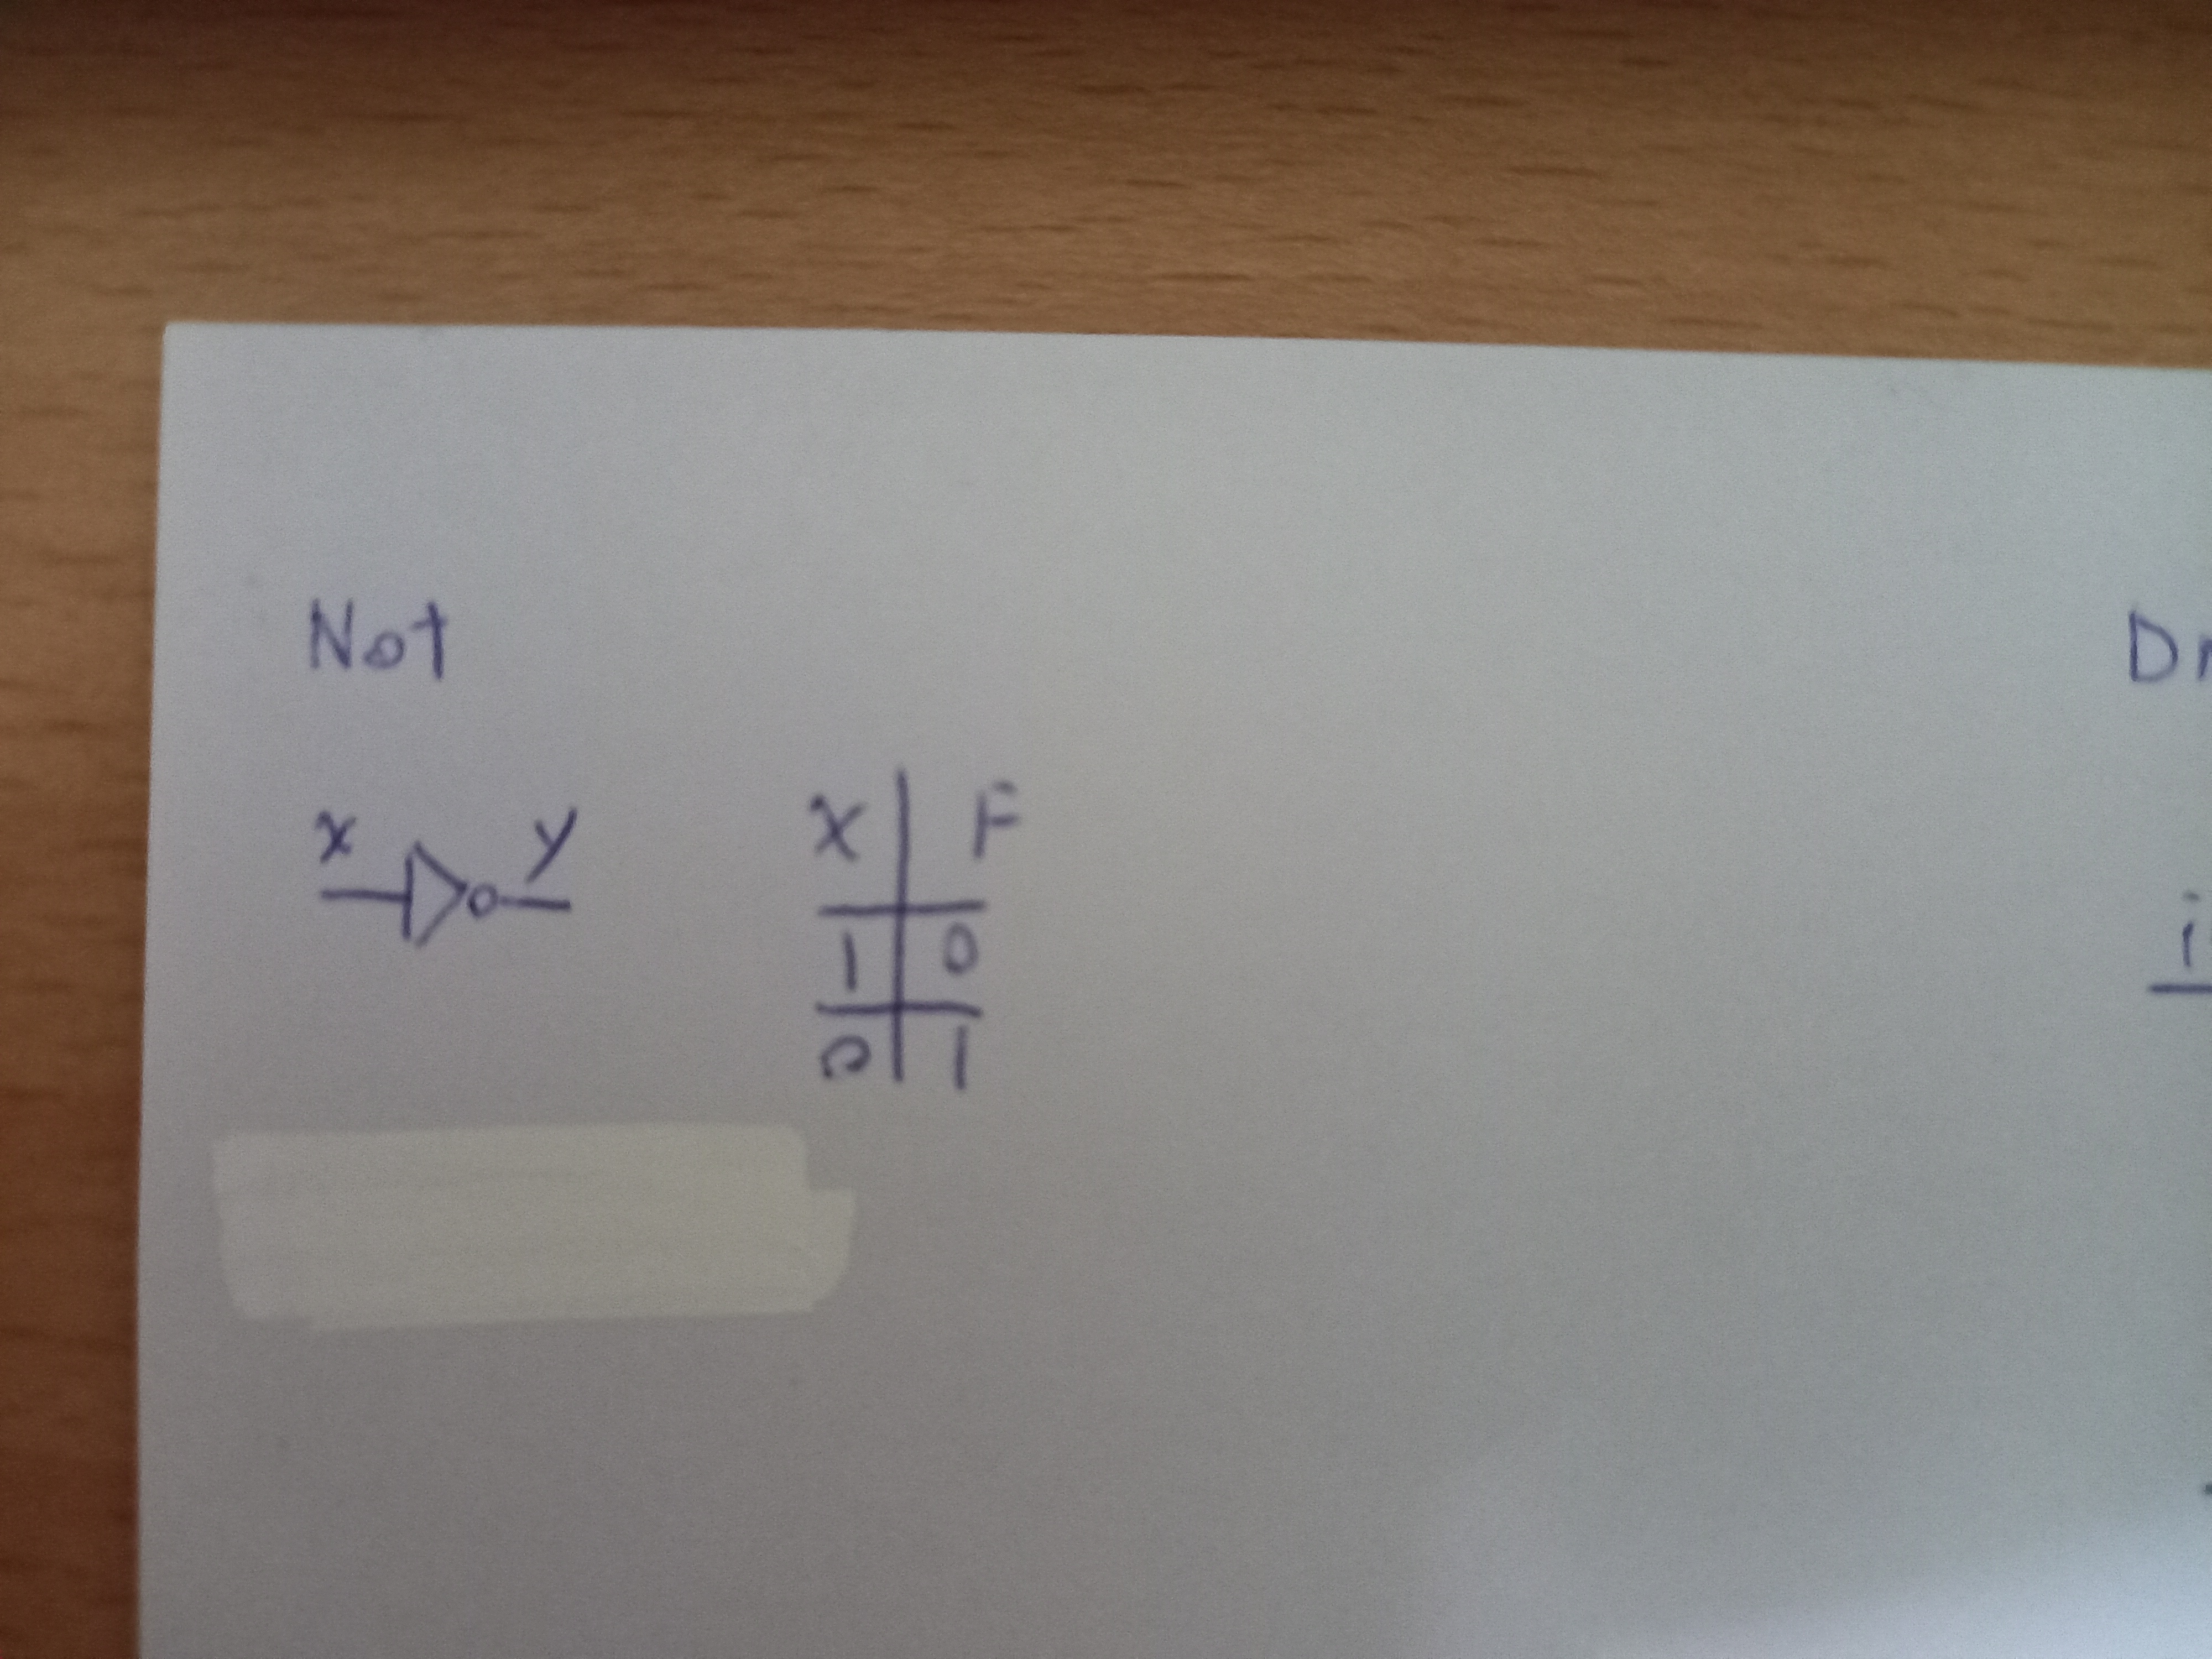 Not
x y
X F
1 0
0 1